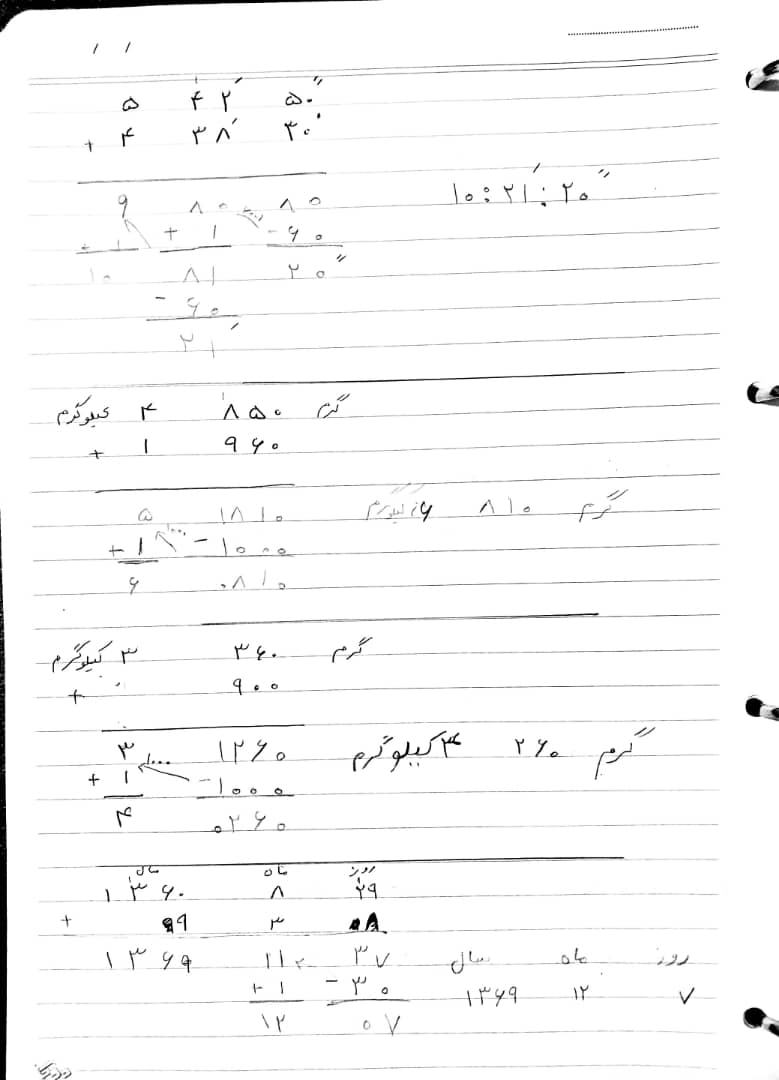 ۵ ۴۲′ ۵۰″
+ ۴ ۳۸′ ۳۰″
۹ ۸۰ ۸۰ ۱۰:۲۱′:۲۰″
+ ۱ + ۱ - ۶۰
۱۰ ۸۱ ۲۰″
- ۶۰
۲۱′
کیلوگرم ۴ ۸۵۰ گرم
+ ۱ ۹۶۰
۵ ۱۸۱۰ ۶ کیلوگرم ۸۱۰ گرم
+ ۱ - ۱۰۰۰
۶ ۰۸۱۰
کیلوگرم ۳ ۳۶۰ گرم
+ ۹۰۰
۳ ۱۲۶۰ ۴ کیلوگرم ۲۶۰ گرم
+ ۱ - ۱۰۰۰
۴ ۰۲۶۰
سال ماه روز
۱۳۶۰ ۸ ۲۹
+ ۹ ۳ ۰۸
۱۳۶۹ ۱۱ ۳۷ سال ماه روز
+ ۱ - ۳۰ ۱۳۶۹ ۱۲ ۷
۱۲ ۰۷